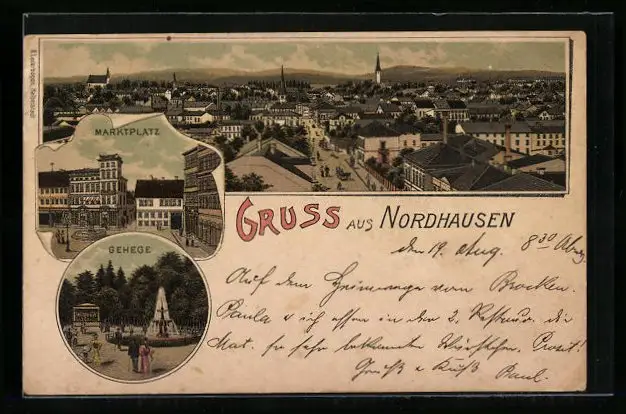 MARKTPLATZ
GEHEGE
GRUSS AUS NORDHAUSEN
den 19. Aug. 8 30
Auf dem Heimwege vom Brocken.
Paula u ich essen in der 2. Restaur. die
so sehr bekannten Würstchen. Prosit!
Gruß u Kuß Paul.